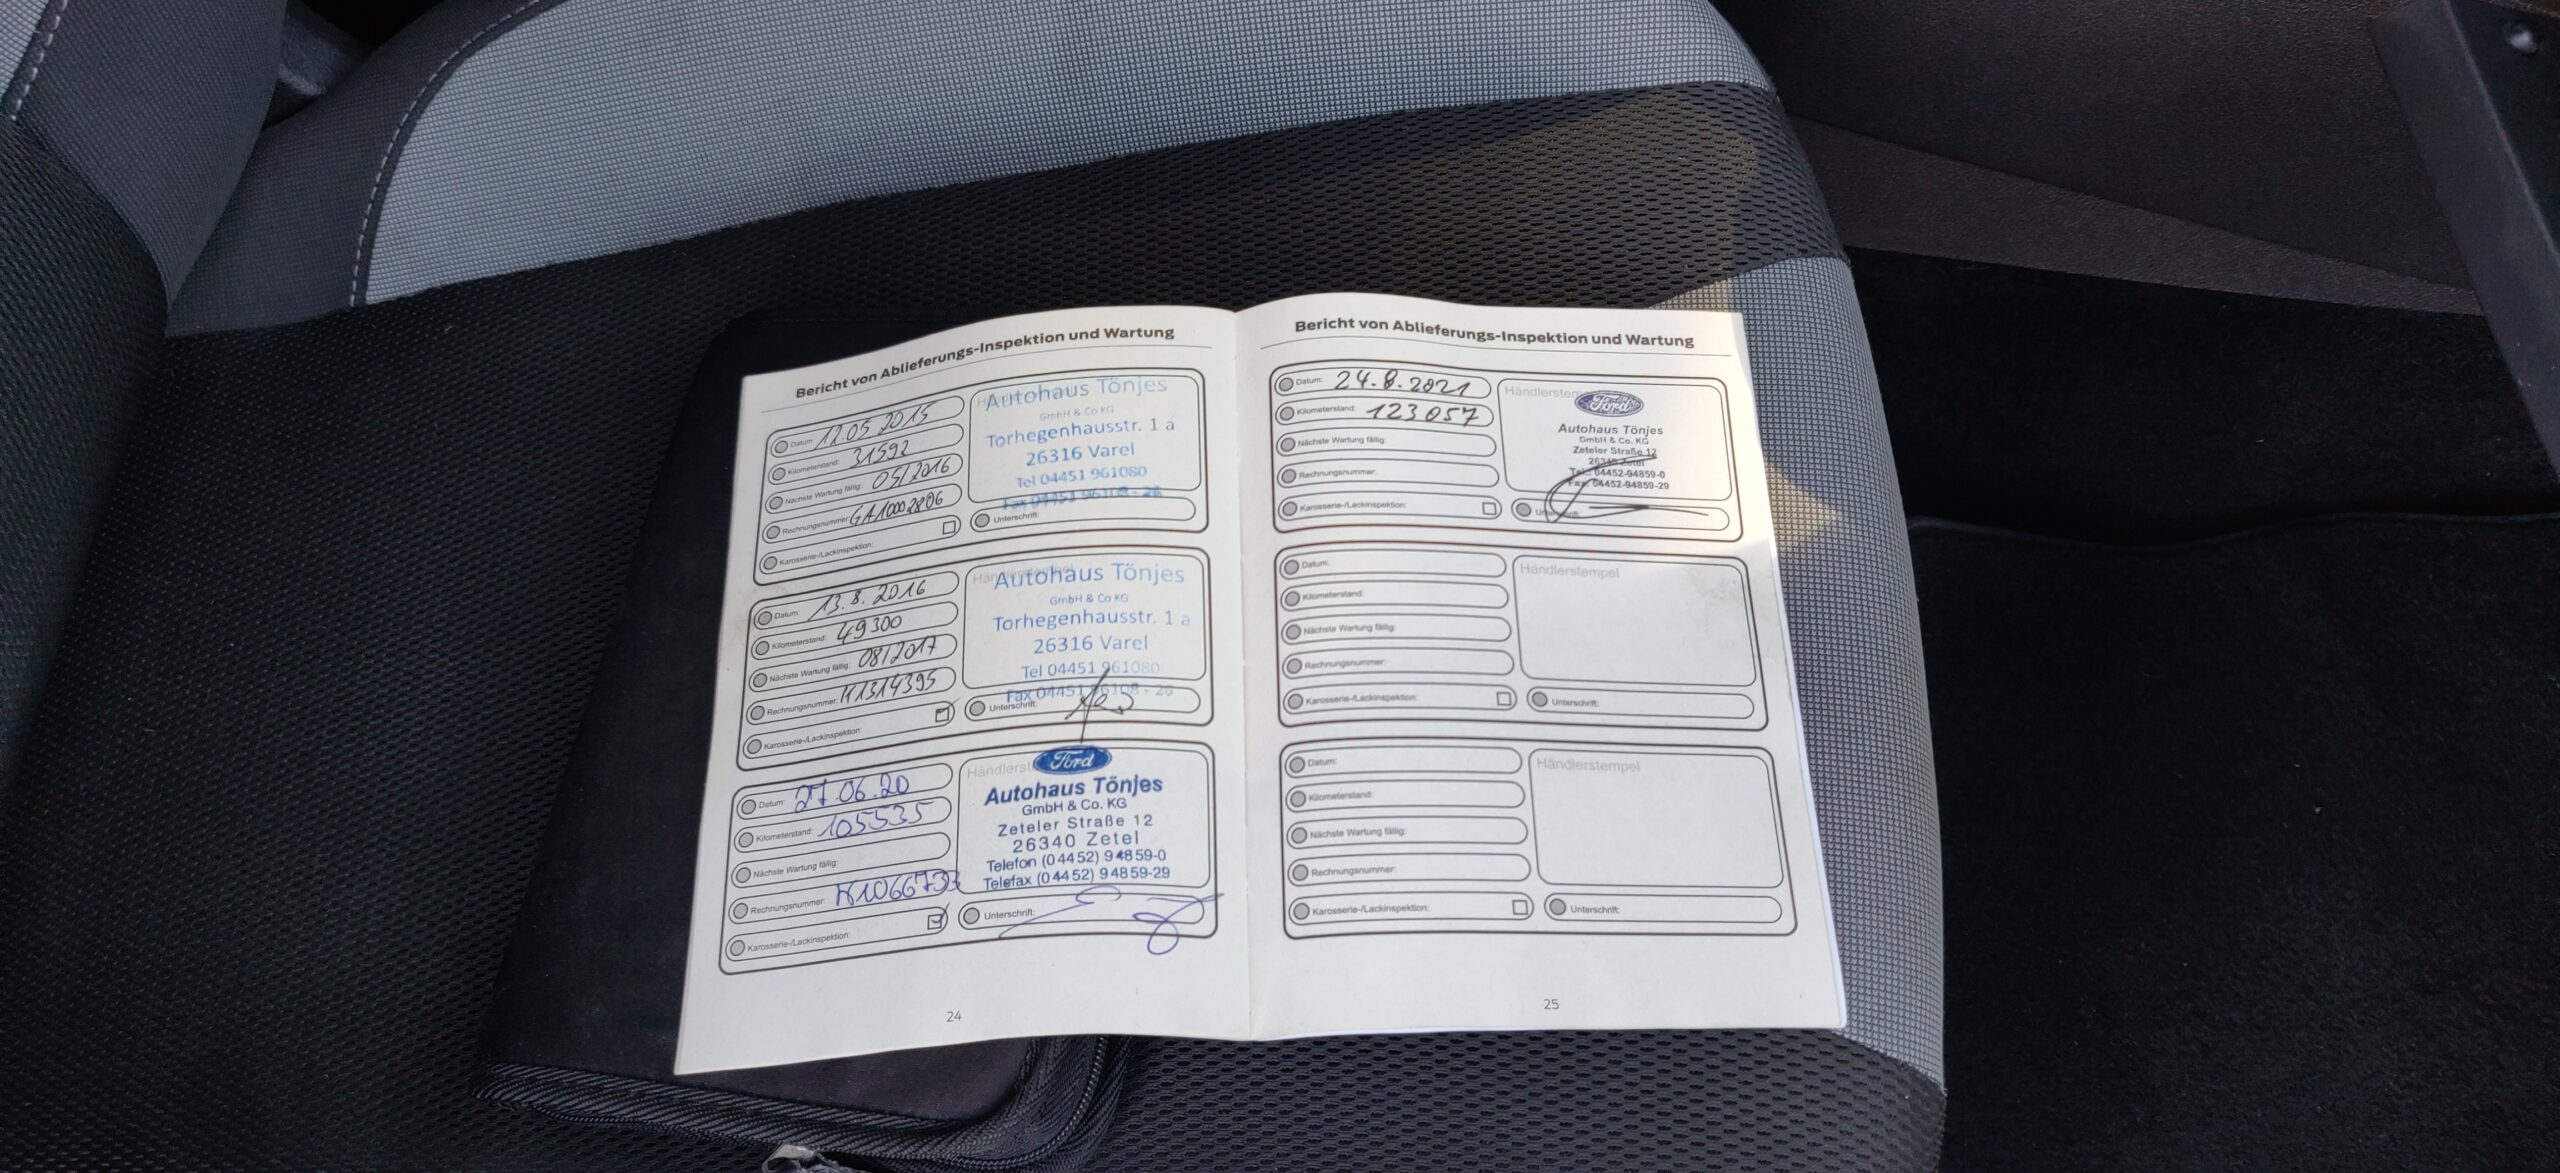 Bericht von Ablieferungs-Inspektion und Wartung
Datum: 12.05 2015
Kilometerstand: 31592
Nächste Wartung fällig: 05/2016
Rechnungsnummer: GA10002806
Karosserie-/Lackinspektion:
Autohaus Tönjes
GmbH & Co KG
Torhegenhausstr. 1 a
26316 Varel
Tel 04451 961080
Fax 04451 96108 - 26
Unterschrift:
Datum: 13.8.2016
Kilometerstand: 49300
Nächste Wartung fällig: 08/2017
Rechnungsnummer: H1314395
Karosserie-/Lackinspektion:
Händlerstempel
Autohaus Tönjes
GmbH & Co KG
Torhegenhausstr. 1 a
26316 Varel
Tel 04451 961080
Fax 04451 96108 - 26
Unterschrift:
Datum: 27.06.20
Kilometerstand: 105535
Nächste Wartung fällig:
Rechnungsnummer: H1066733
Karosserie-/Lackinspektion:
Ford
Autohaus Tönjes
GmbH & Co. KG
Zeteler Straße 12
26340 Zetel
Telefon (04452) 94859-0
Telefax (04452) 94859-29
Unterschrift:
24
Bericht von Ablieferungs-Inspektion und Wartung
Datum: 24.8.2021
Kilometerstand: 123057
Nächste Wartung fällig:
Rechnungsnummer:
Karosserie-/Lackinspektion:
Ford
Autohaus Tönjes
GmbH & Co. KG
Zeteler Straße 12
26340 Zetel
Tel.: 04452-94859-0
Fax: 04452-94859-29
Unterschrift:
Datum:
Kilometerstand:
Nächste Wartung fällig:
Rechnungsnummer:
Karosserie-/Lackinspektion:
Händlerstempel
Unterschrift:
Datum:
Kilometerstand:
Nächste Wartung fällig:
Rechnungsnummer:
Karosserie-/Lackinspektion:
Händlerstempel
Unterschrift:
25